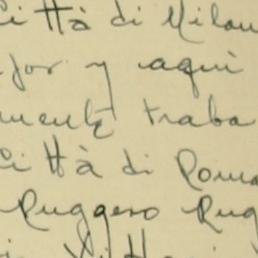 Città di Milan
jor y aquì
mente traba
Città di Roma
Ruggero Rug